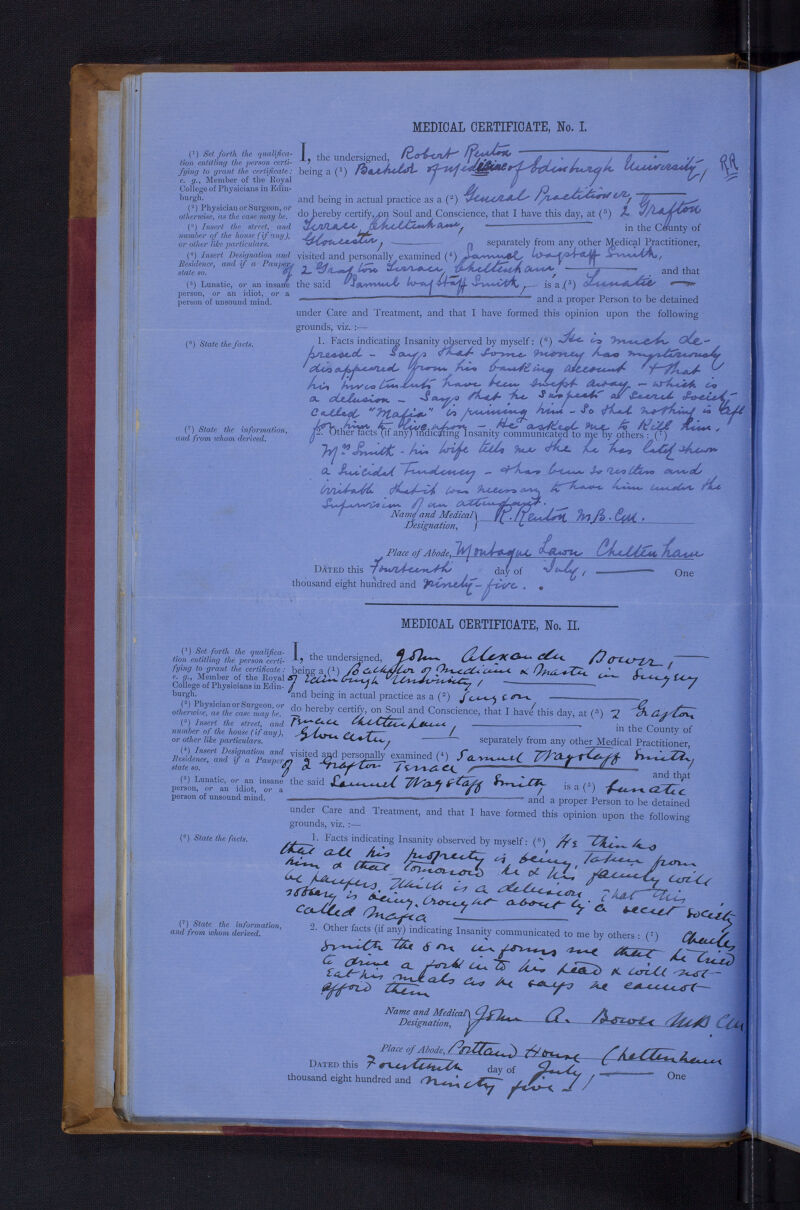 MEDICAL CERTIFICATE, No. I.
(¹) Set forth the qualifica-
tion entitling the person certi-
fying to grant the certificate:
e. g., Member of the Royal
College of Physicians in Edin-
burgh.
(²) Physician or Surgeon, or
otherwise, as the case may be.
(³) Insert the street, and
number of the house (if any),
or other like particulars.
(⁴) Insert Designation and
Residence, and if a Pauper
state so.
(⁵) Lunatic, or an insane
person, or an idiot, or a
person of unsound mind.
(⁶) State the facts.
(⁷) State the information,
and from whom derived.
I, the undersigned, Robert Renton
being a (¹) Bachelor of Medicine of Edinburgh University, RR
and being in actual practice as a (²) General Practitioner,
do hereby certify, on Soul and Conscience, that I have this day, at (³) 2 Grafton
Terrace, Cheltenham, in the County of
Gloucester, separately from any other Medical Practitioner,
visited and personally examined (⁴) Samuel Wagstaff Smith,
of 2 Grafton Terrace, Cheltenham, and that
the said Samuel Wagstaff Smith, is a (⁵) Lunatic
and a proper Person to be detained
under Care and Treatment, and that I have formed this opinion upon the following
grounds, viz. :—
1. Facts indicating Insanity observed by myself: (⁶) He is much de-
pressed - Says that some money has mysteriously
disappeared from his banking account & that
his investments have been swept away - which is
a delusion - Says that he suspects a secret society
called "Mafia" is ruining him - So that nothing is left
for him to live upon - He asked me to kill him.
2. Other facts (if any) indicating Insanity communicated to me by others: (⁷)
Mrs Smith - his wife tells me that he has lately shewn
a Suicidal Tendency - & has been so restless and
irritable that it was necessary to have him under the
Supervision of an attendant.
Name and Medical Designation, R. Renton M.B. C.M.
Place of Abode, Montague Lawn Cheltenham
DATED this Fourteenth day of July, One
thousand eight hundred and ninety-five.
MEDICAL CERTIFICATE, No. II.
(¹) Set forth the qualifica-
tion entitling the person certi-
fying to grant the certificate:
e. g., Member of the Royal
College of Physicians in Edin-
burgh.
(²) Physician or Surgeon, or
otherwise, as the case may be.
(³) Insert the street, and
number of the house (if any),
or other like particulars.
(⁴) Insert Designation and
Residence, and if a Pauper
state so.
(⁵) Lunatic, or an insane
person, or an idiot, or a
person of unsound mind.
(⁶) State the facts.
(⁷) State the information,
and from whom derived.
I, the undersigned, John Alexander Bower,
being a (¹) Bachelor of Medicine & Master in Surgery
of Edinburgh University,
and being in actual practice as a (²) Surgeon
do hereby certify, on Soul and Conscience, that I have this day, at (³) 2 Grafton
Terrace Cheltenham, in the County of
Gloucester, separately from any other Medical Practitioner,
visited and personally examined (⁴) Samuel Wagstaff Smith,
of 2 Grafton Terrace and that
the said Samuel Wagstaff Smith, is a (⁵) Lunatic
and a proper Person to be detained
under Care and Treatment, and that I have formed this opinion upon the following
grounds, viz. :—
1. Facts indicating Insanity observed by myself: (⁶) He thinks
that all his property is being taken from
him & that tomorrow he & his family will
be paupers. Which is a delusion. That this
robbery is being brought about by a secret society
called Mafia
2. Other facts (if any) indicating Insanity communicated to me by others: (⁷) Charles
Smith the son informs me that he tried
to drive a fork into his head & will not
eat his meals as he says he cannot
afford them
Name and Medical Designation, John A. Bower MB CM
Place of Abode, Portland House Cheltenham
DATED this Fourteenth day of July, One
thousand eight hundred and ninety five